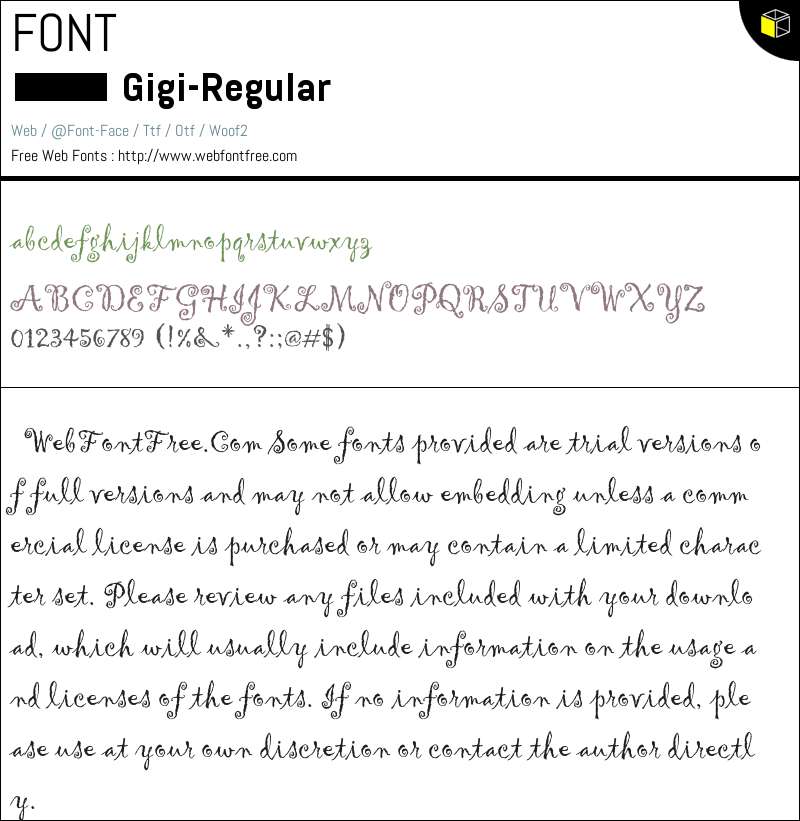 FONT
Gigi-Regular
Web / @Font-Face / Ttf / Otf / Woof2
Free Web Fonts : http://www.webfontfree.com
abcdefghijklmnopqrstuvwxyz
ABCDEFGHIJKLMNOPQRSTUVWXYZ
0123456789 (!%&*.,?:;@#$)
WebFontFree.Com Some fonts provided are trial versions o
f full versions and may not allow embedding unless a comm
ercial license is purchased or may contain a limited charac
ter set. Please review any files included with your downlo
ad, which will usually include information on the usage a
nd licenses of the fonts. If no information is provided, ple
ase use at your own discretion or contact the author directl
y.